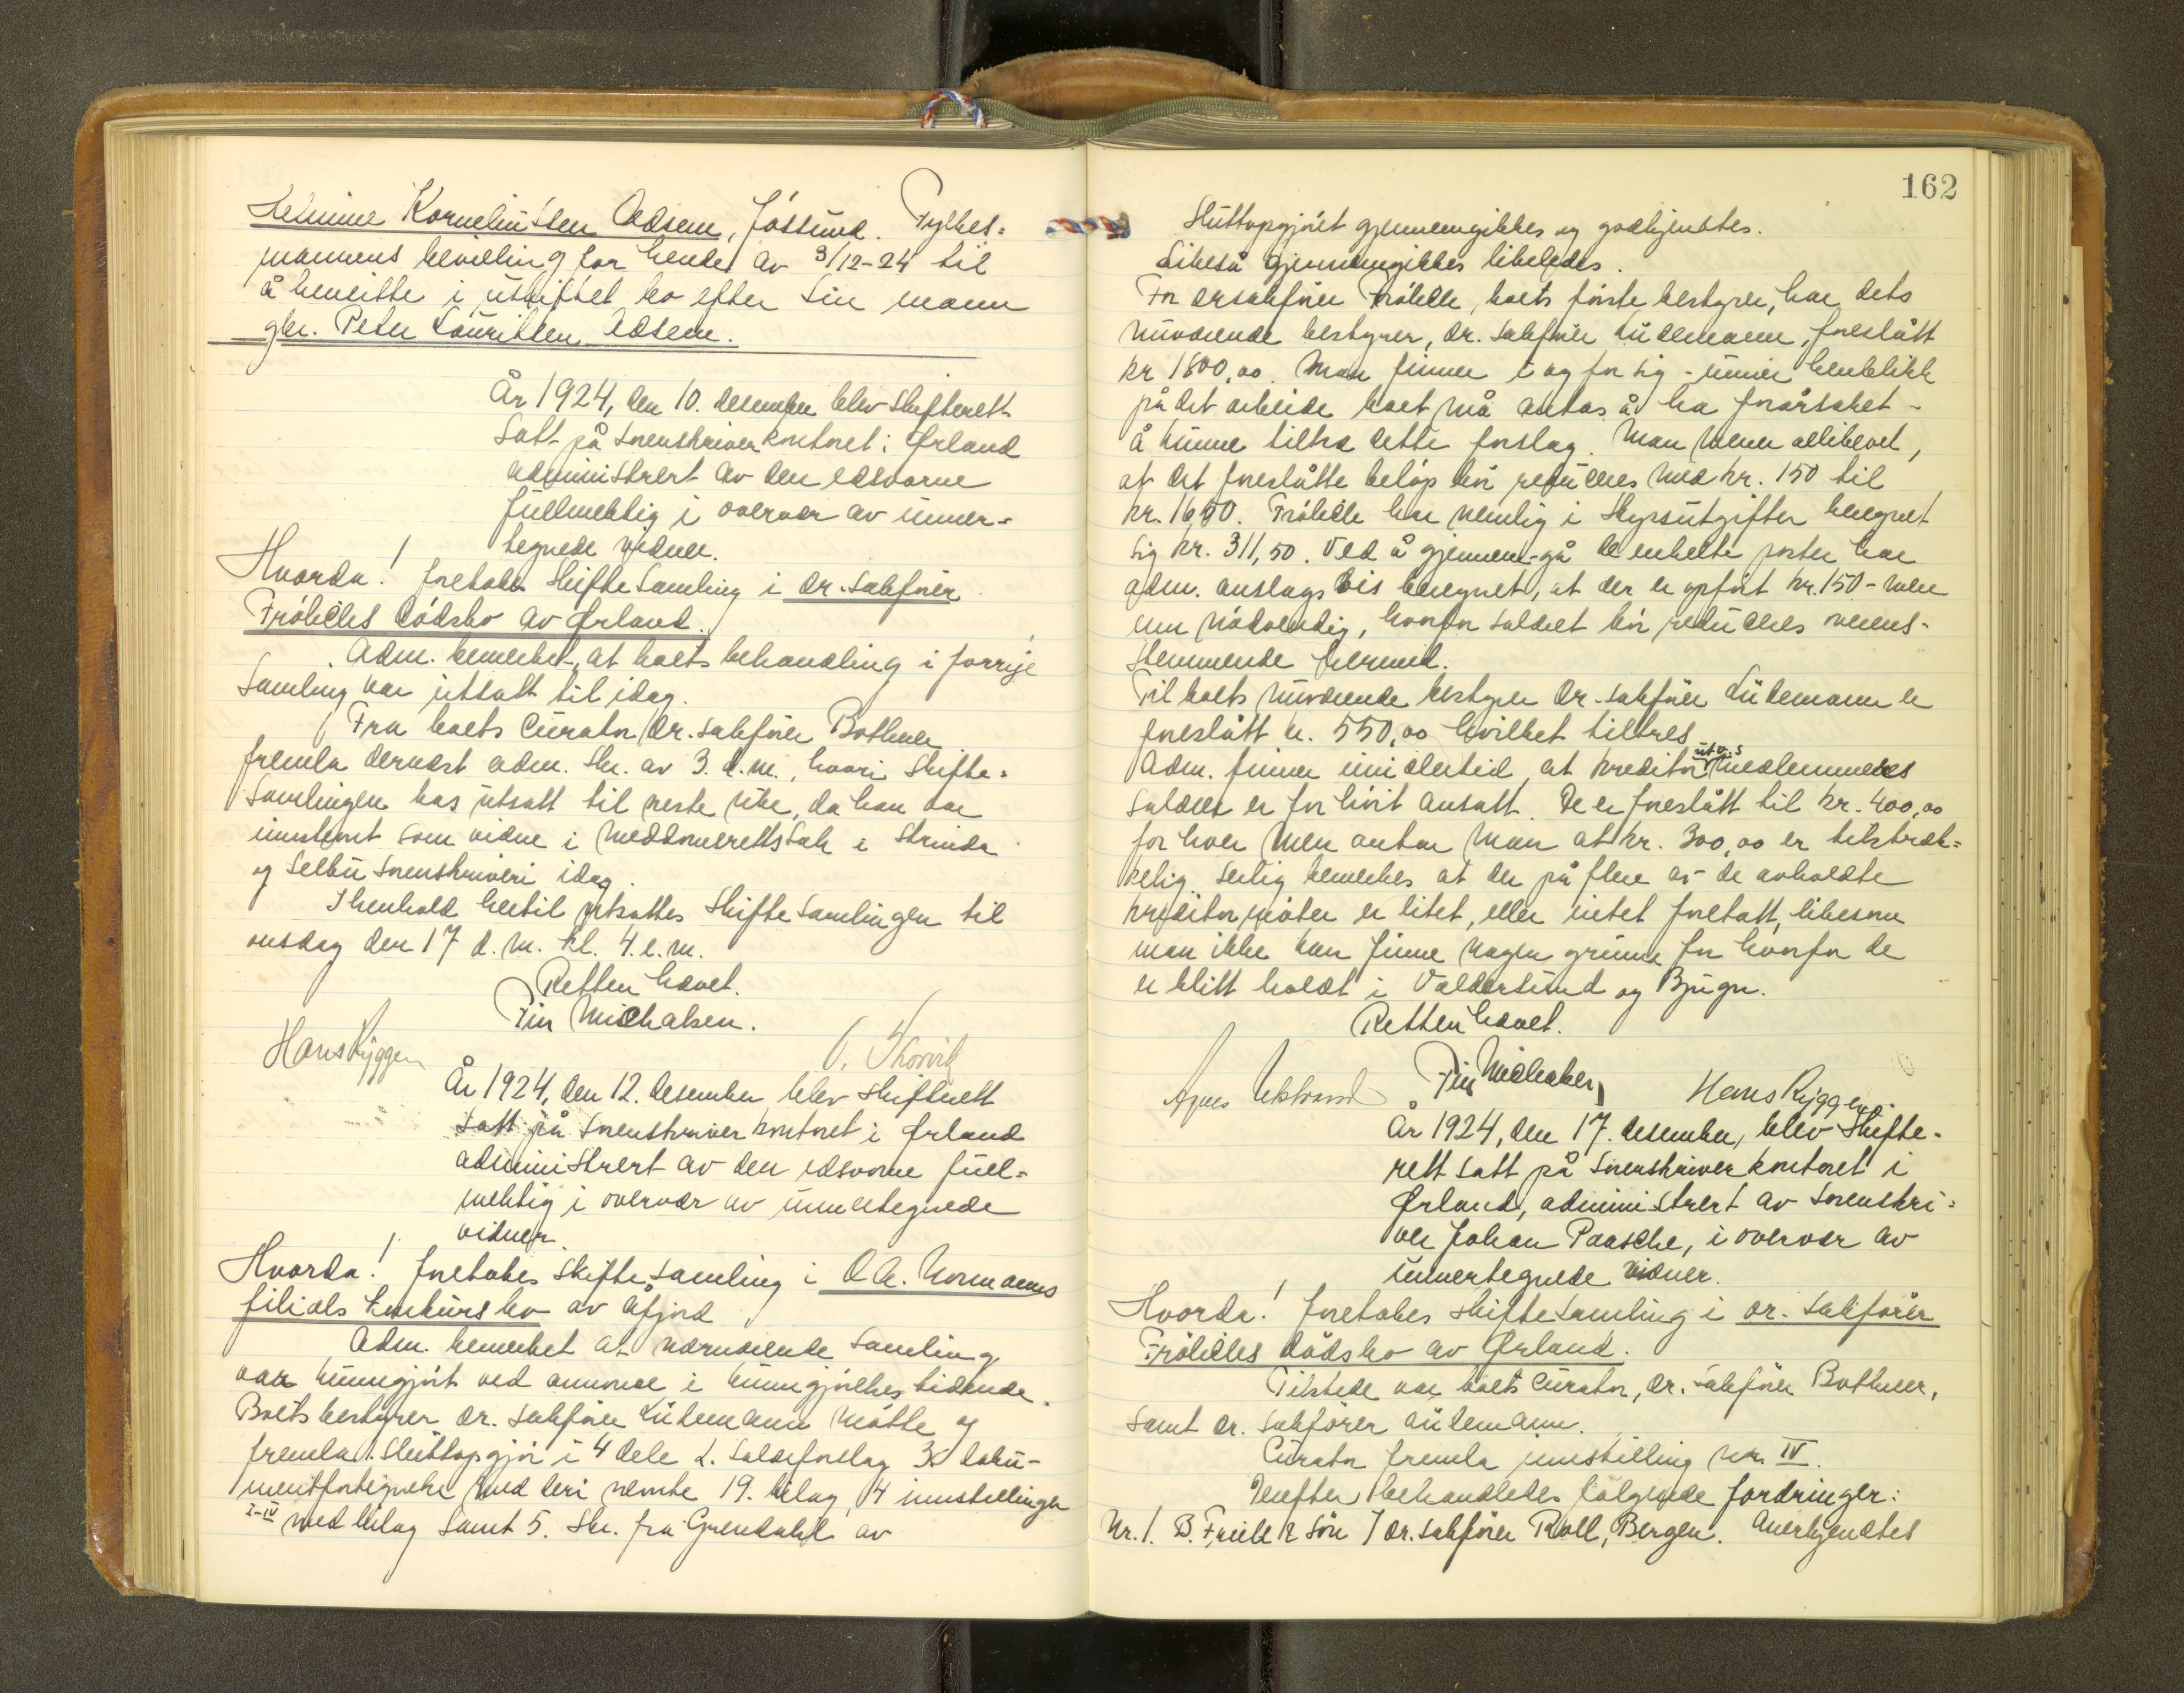 Helmine Korneliusen Adsem, Jøssund. Fylkes-
mannens bevilling for hende av 3/12-24 til
å hensitte i uskiftet bo efter sin mann
gbr. Peter Lauritsen Adsem.
År 1924, den 10. desember blev skifterett
satt på sorenskriverkontoret i Ørland
administrert av den edsvorne
fullmektig i overvær av unner-
tegnede vidner.
Hvorda! foretokes skiftesamling i or. sakfører
Frølichs dødsbo av Ørland.
Adm. bemerket, at boets behandling i forrige
samling var utsatt til idag.
Fra boets curator or. sakfører Bothner
fremla dernæst adm. skr. av 3. d.m., hvori skifte-
samlingen bes utsatt til neste uke, da han var
innstevnt som vidne i meddomsrettssak i Strinda
og Selbu sorenskriveri idag.
I henhold hertil utsattes skiftesamlingen til
onsdag den 17 d. m. kl. 4. e. m.
Retten hævet.
Fin Michalsen.
Hans Ryggen
År 1924, den 12. desember blev skifterett
satt på sorenskriverkontoret i Ørland
administrert av den edsvorne full-
mektig i overvær av unnertegnede
vidner.
Hvorda! foretokes skiftesamling i O. A. Normanns
filials konkursbo av Åfjord
Adm. bemerket at nærværende samling
var kunngjort ved annonce i kunngjørelsestidende.
Boets bestyrer or. sakfører Lüdemann møtte og
fremla 1. sluttopgjør i 4 dele 2. salærforslag 3. doku-
mentfortegnelse med deri nevnte 19. bilag, 4 innstillinger
I-IV med bilag samt 5. skr. fra Grendahl av
162
Sluttopgjøret gjennemgikkes og godkjentes.
Likeså gjennemgikkes likeledes.
For orsakfører Frølich, boets første bestyrer, har dets
nuværende bestyrer, or. sakfører Lüdemann, foreslått
kr 1800,00. Man finner i og for sig - unner henblikk
på det arbeide boet må antas å ha forårsaket -
å kunne tiltre dette forslag. Man mener allikevel,
at det foreslåtte beløp bør reduceres med kr. 150 til
kr. 1650. Frølich har nemlig i skyssutgifter beregnet
sig kr. 311,50. Ved å gjennem-gå de enkelte poster har
adm. anslagsvis beregnet, at der er opført kr. 150 - mere
enn nødvendig, hvorfor salæret bør reduceres overens-
stemmende hermed.
Til boets nuværende bestyrer or. sakfører Lüdemann er
foreslått kr. 550,00 hvilket tiltres
Adm. finner imidlertid, at kreditorutv.s medlemmenes
salærer er for høit ansatt. De er foreslått til kr. 400,00
for hver men antar man at kr. 300,00 er tilstræk-
kelig. Særlig bemerkes at der på flere av de avholdte
kreditormøter er litet, eller intet foretatt, likesom
man ikke kan finne nogen grunn for hvorfor de
er blitt holdt i Valdersund og Bjugn.
Retten hævet.
Fin Michalsen
Hans Ryggen.
År 1924, den 17. desember, blev skifte-
rett satt på sorenskriverkontoret i
Ørland, administrert av sorenskri-
ver Johan Paasche, i overvær av
unnertegnede vidner.
Hvorda! foretokes skiftesamling i or. sakfører
Frølichs dødsbo av Ørland.
Tilstede var boets curator, or. sakfører Bothner,
samt or. sakfører Lüdemann.
Curator fremla innstilling nr. IV.
Derefter behandledes følgende fordringer:
Nr. 1. B. Friele & Søn / or. sakfører Roll, Bergen. Anerkjendtes